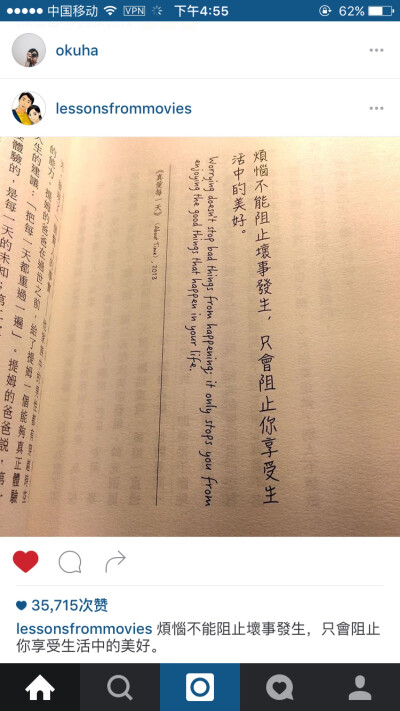 中国移动 VPN 下午4:55 62%
okuha
lessonsfrommovies
煩惱不能阻止壞事發生，只會阻止你享受生
活中的美好。
Worrying doesn't stop bad things from happening; it only stops you from
enjoying the good things that happen in your life.
《真愛每一天》（About Time），2013
的能力，提姆的爸爸在過世之前，給了提姆一個能夠真正體驗
人生的建議：「把每一天都重過一遍」。提姆的爸爸說，第
體驗的，是每一天的未知；第二
35,715次赞
lessonsfrommovies 煩惱不能阻止壞事發生，只會阻止
你享受生活中的美好。